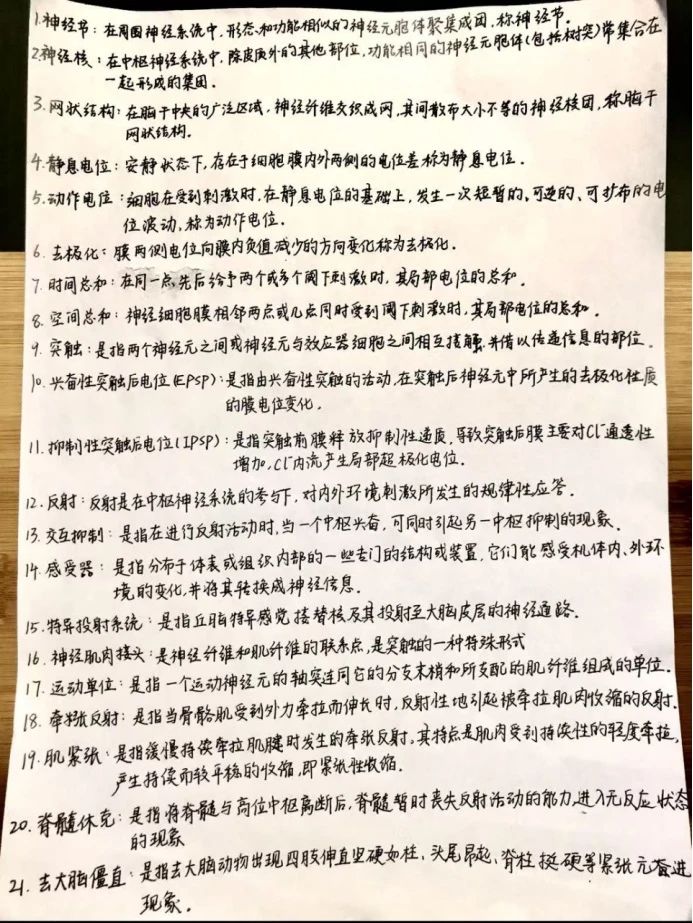 1.神经节:在周围神经系统中,形态和功能相似的神经元胞体聚集成团,称神经节。
2.神经核:在中枢神经系统中,除皮质外的其他部位,功能相同的神经元胞体(包括树突)常集合在
一起形成的集团。
3.网状结构:在脑干中央的广泛区域,神经纤维交织成网,其间散布大小不等的神经核团,称脑干
网状结构。
4.静息电位:安静状态下,存在于细胞膜内外两侧的电位差称为静息电位。
5.动作电位:细胞在受到刺激时,在静息电位的基础上,发生一次短暂的、可逆的、可扩布的电
位波动,称为动作电位。
6.去极化:膜两侧电位向膜内负值减少的方向变化称为去极化。
7.时间总和:在同一点先后给予两个或多个阈下刺激时,其局部电位的总和。
8.空间总和:神经细胞膜相邻两点或几点同时受到阈下刺激时,其局部电位的总和。
9.突触:是指两个神经元之间或神经元与效应器细胞之间相互接触,并借以传递信息的部位。
10.兴奋性突触后电位(EPSP):是指由兴奋性突触的活动,在突触后神经元中所产生的去极化性质
的膜电位变化。
11.抑制性突触后电位(IPSP):是指突触前膜释放抑制性递质,导致突触后膜主要对Cl⁻通透性
增加,Cl⁻内流产生局部超极化电位。
12.反射:反射是在中枢神经系统的参与下,对内外环境刺激所发生的规律性应答。
13.交互抑制:是指在进行反射活动时,当一个中枢兴奋,可同时引起另一中枢抑制的现象。
14.感受器:是指分布于体表或组织内部的一些专门的结构或装置,它们能感受机体内、外环
境的变化,并将其转换成神经信息。
15.特异投射系统:是指丘脑特异感觉接替核及其投射至大脑皮层的神经通路。
16.神经肌肉接头:是神经纤维和肌纤维的联系点,是突触的一种特殊形式
17.运动单位:是指一个运动神经元的轴突连同它的分支末梢和所支配的肌纤维组成的单位。
18.牵张反射:是指当骨骼肌受到外力牵拉而伸长时,反射性地引起被牵拉肌肉收缩的反射.
19.肌紧张:是指缓慢持续牵拉肌腱时发生的牵张反射,其特点是肌肉受到持续性的轻度牵拉,
产生持续而较平稳的收缩,即紧张性收缩.
20.脊髓休克:是指将脊髓与高位中枢离断后,脊髓暂时丧失反射活动的能力,进入无反应状态
的现象
21.去大脑僵直:是指去大脑动物出现四肢伸直坚硬如柱、头尾昂起、脊柱挺硬等紧张亢奋进
现象.